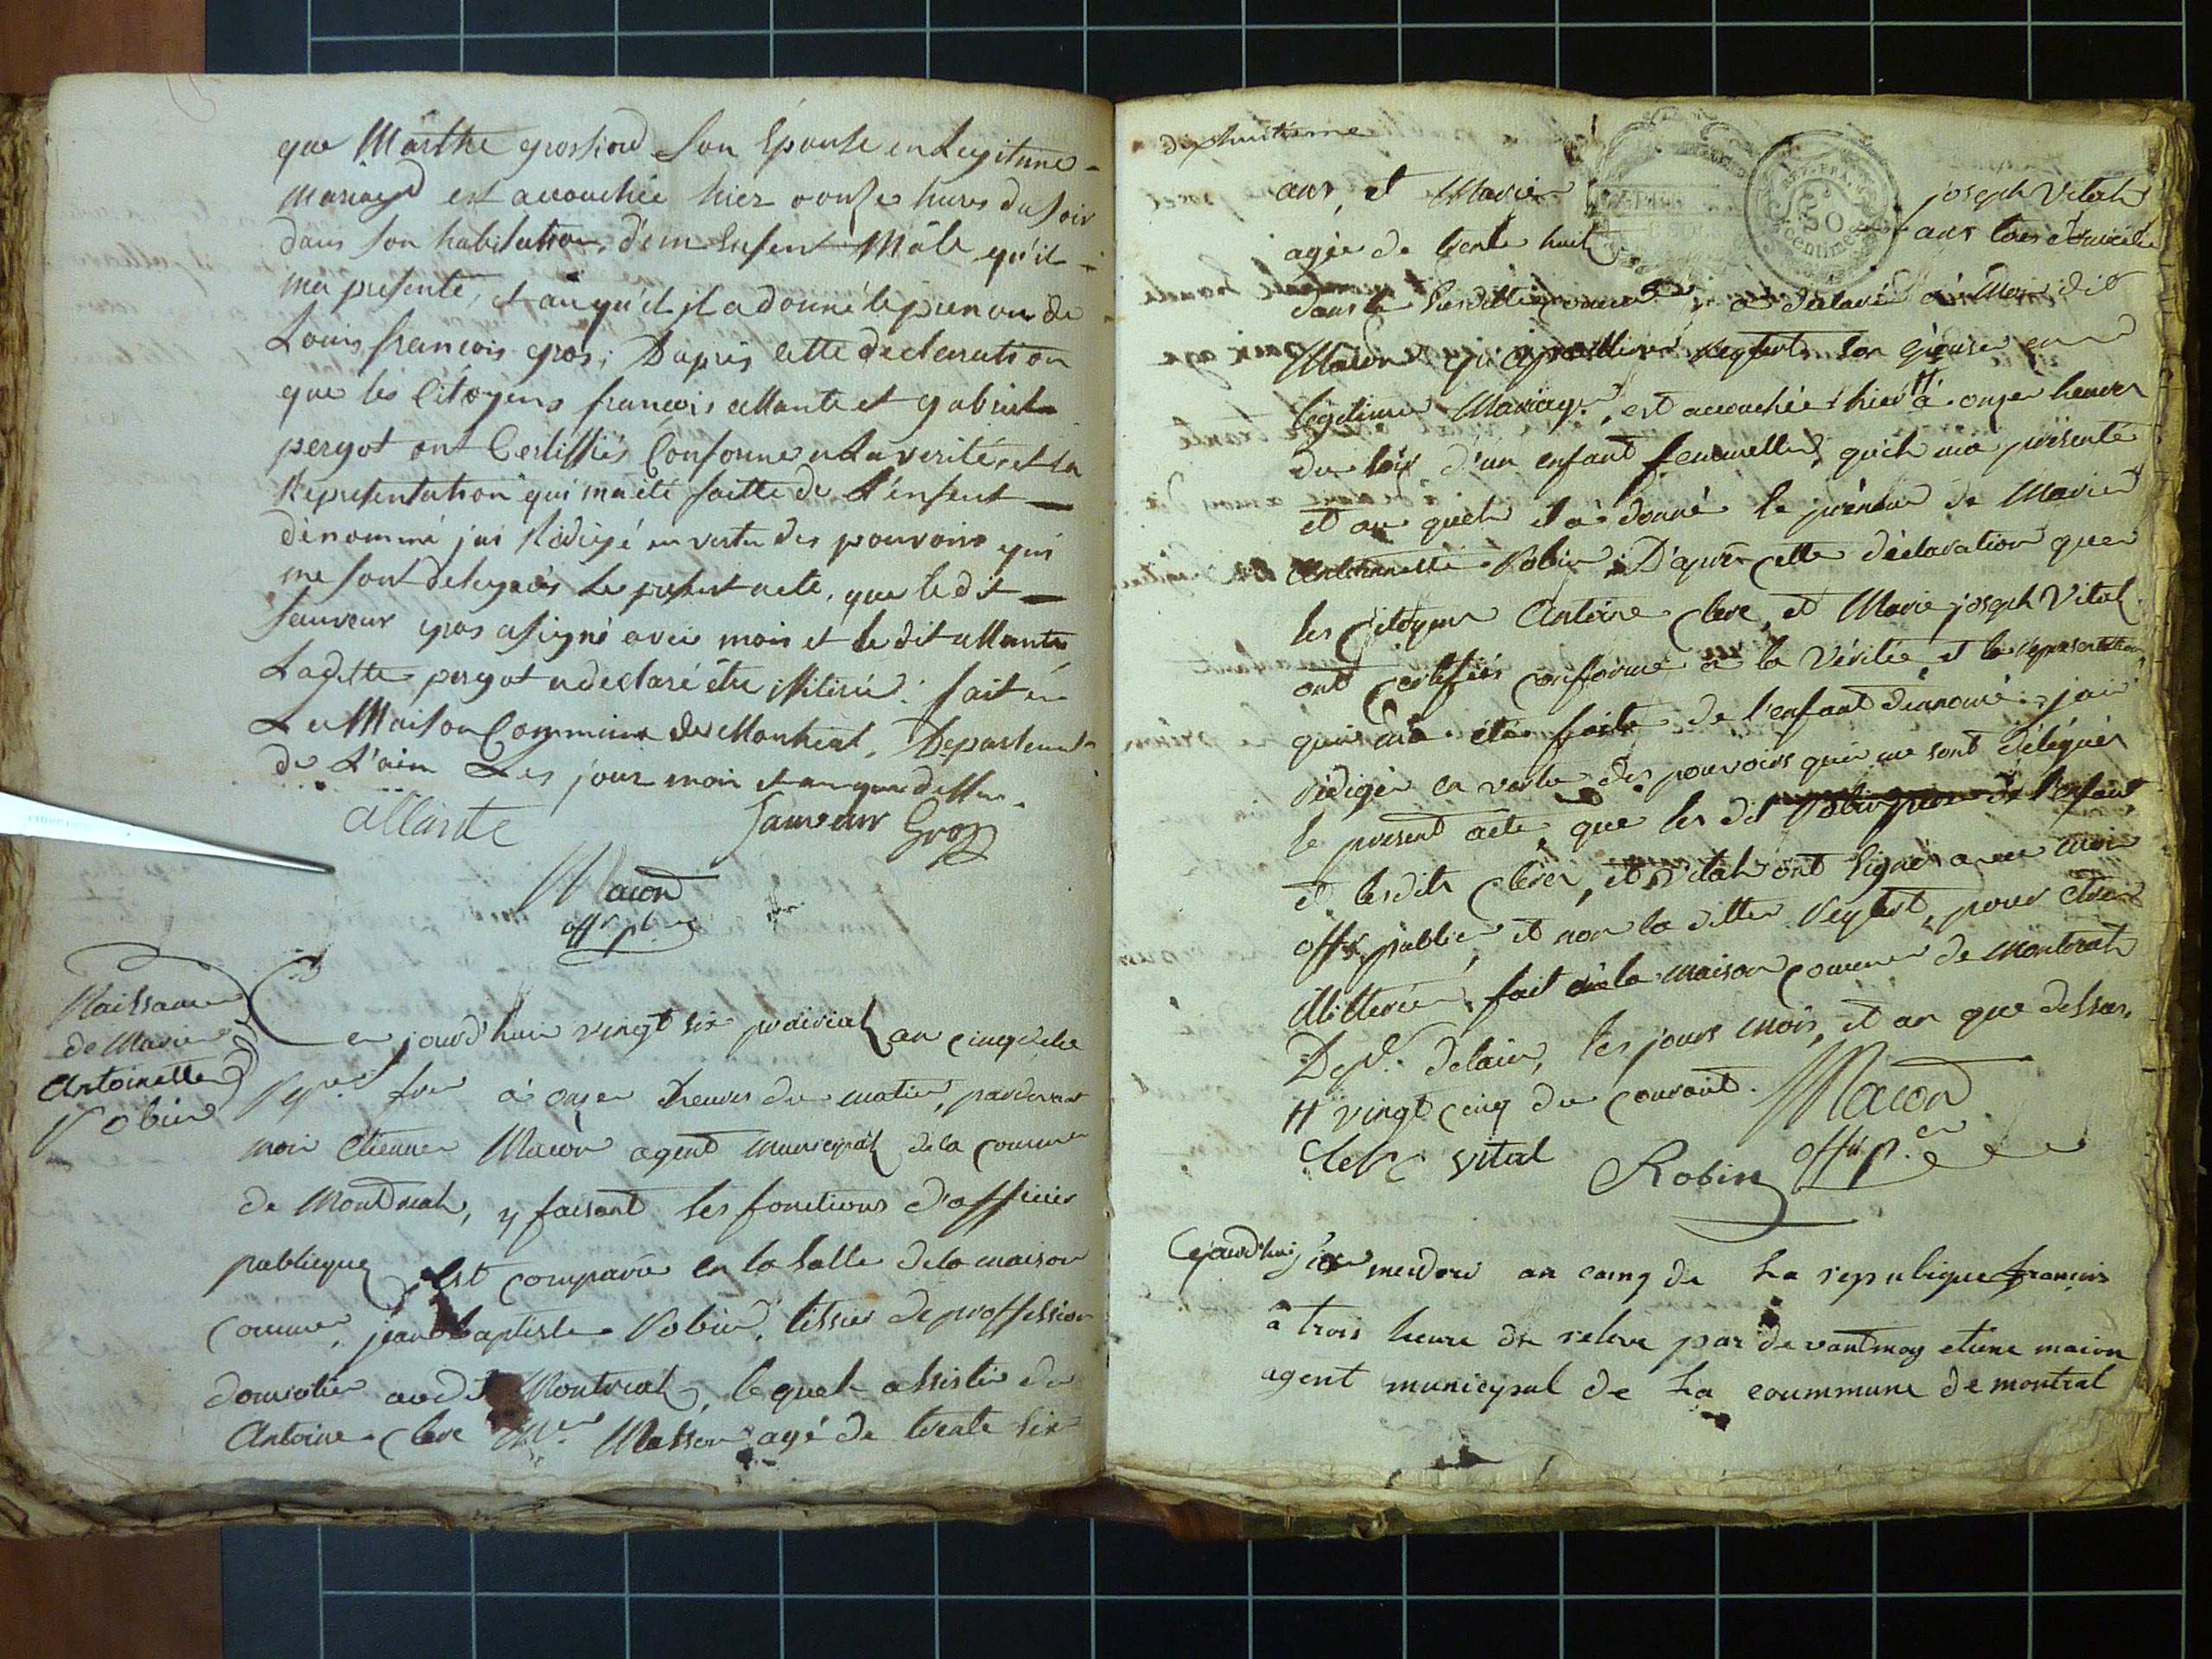 que Marthe grossiord son Épouse en Legitime
mariage est accouchée hier a onze hures du soir
dans son habitation, d'un Enfent Mâle qu'il
ma presenté, et auqu'el il a donné le prenom de
Louis françois gros; Dapris cette declaration
que les Citoyens françois allante et gabriel
pergot ont Certiffiés Conforme a La verité, et La
Representation qui ma eté faitte de L'enfent
dénommé jai Redigé en vertu des pouvoirs qui
me sont delegués Le present acte, que le dit
sauveur gros a signé avec moi et le dit allante
Laditte pergot a declaré être illiteré: fait en
La Maison Commune de Montreal, Departement
de L'ain Les jour mois et an que dessus.
allante Sauveur Gros
Macon
offr. p.
Naissance
de Marie
Antoinette
Robin
Ce jourd'hui vingt six prairial an cinq de la
Rque. fse à onze heures du matin, pardevant
moi Etienne Macon agent municipal de la commune
de Montreal, y faisant les fonctions d'officier
publique, est comparu en la salle de la maison
commune, jean baptiste Robin, tissier de proffession
domicilié audit Montreal, lequel assisté de
Antoine Clerc Me. Masson agé de trente six
dixhuitieme
ans, et Marie joseph Vital
agée de trente huit ans tous domicilié
dans la susditte commune, a declaré à Moi dit
Macon que Reyfert son épouse en
legitime Mariage, est accouchée hier # à onze heures
du soir d'un enfant femmelle, qu'il ma présenté
et au quel il a donné le prénom de Marie
Antoinette Robin; D'aprés cette déclaration que
les Citoyens Antoine Clerc, et Marie joseph Vital
ont certifiés conforme à la Vérité, et la représentation
qui m'a été faite de l'enfant dénomé; jai
rédigé en vertu des pouvoirs qui me sont délégués
le présent acte, que les dit Robin pere de l'enfant
et lesdits Clerc, et Vital ont signés avec moi
offr. public, et non la ditte Reyfert, pour être
illitteré, fait à la maison commune de Montreal
Dept. de lain, les jours mois, et an que dessus.
# vingt cinq du courant. Macon
Clerc vital Robin offr. p.
Cejourd'hui six mesidore an cainq de La repubique françois
à trois heure de releve par devantmoy etiene macon
agent municypal de La coummune de montreal
REP. FRA.
50
centimes